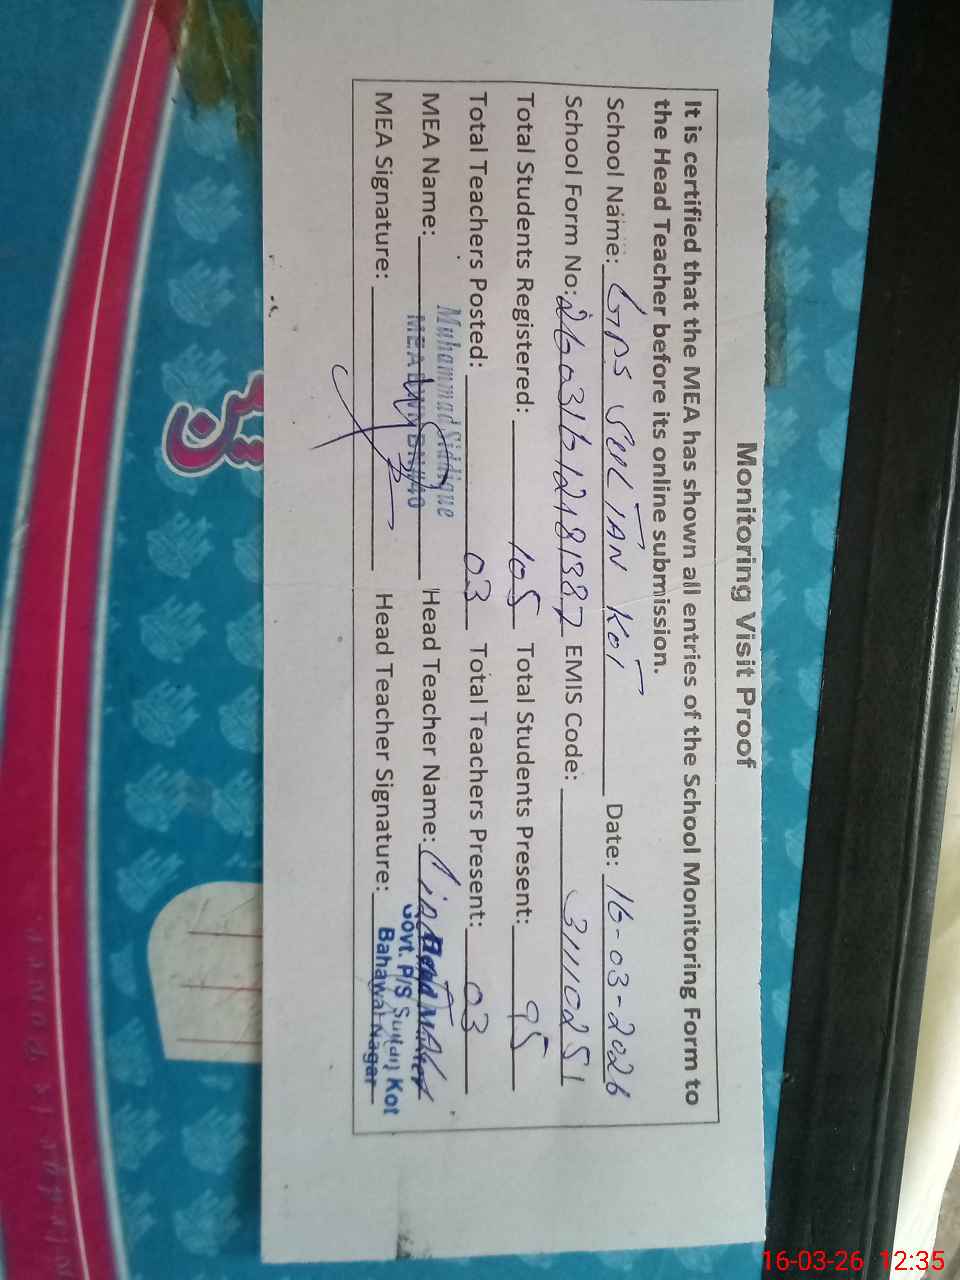 Monitoring Visit Proof
It is certified that the MEA has shown all entries of the School Monitoring Form to
the Head Teacher before its online submission.
School Name: GPS SULTAN KOT Date: 16-03-2026
School Form No: 26031612181387 EMIS Code: 31110251
Total Students Registered: 105 Total Students Present: 95
Total Teachers Posted: 03 Total Teachers Present: 03
Muhammad Siddique
MEA Name: MEA Head Teacher Name:
Head Master
Govt. P/S Sultan Kot
MEA Signature: Head Teacher Signature:
Bahawal Nagar
16-03-26 12:35